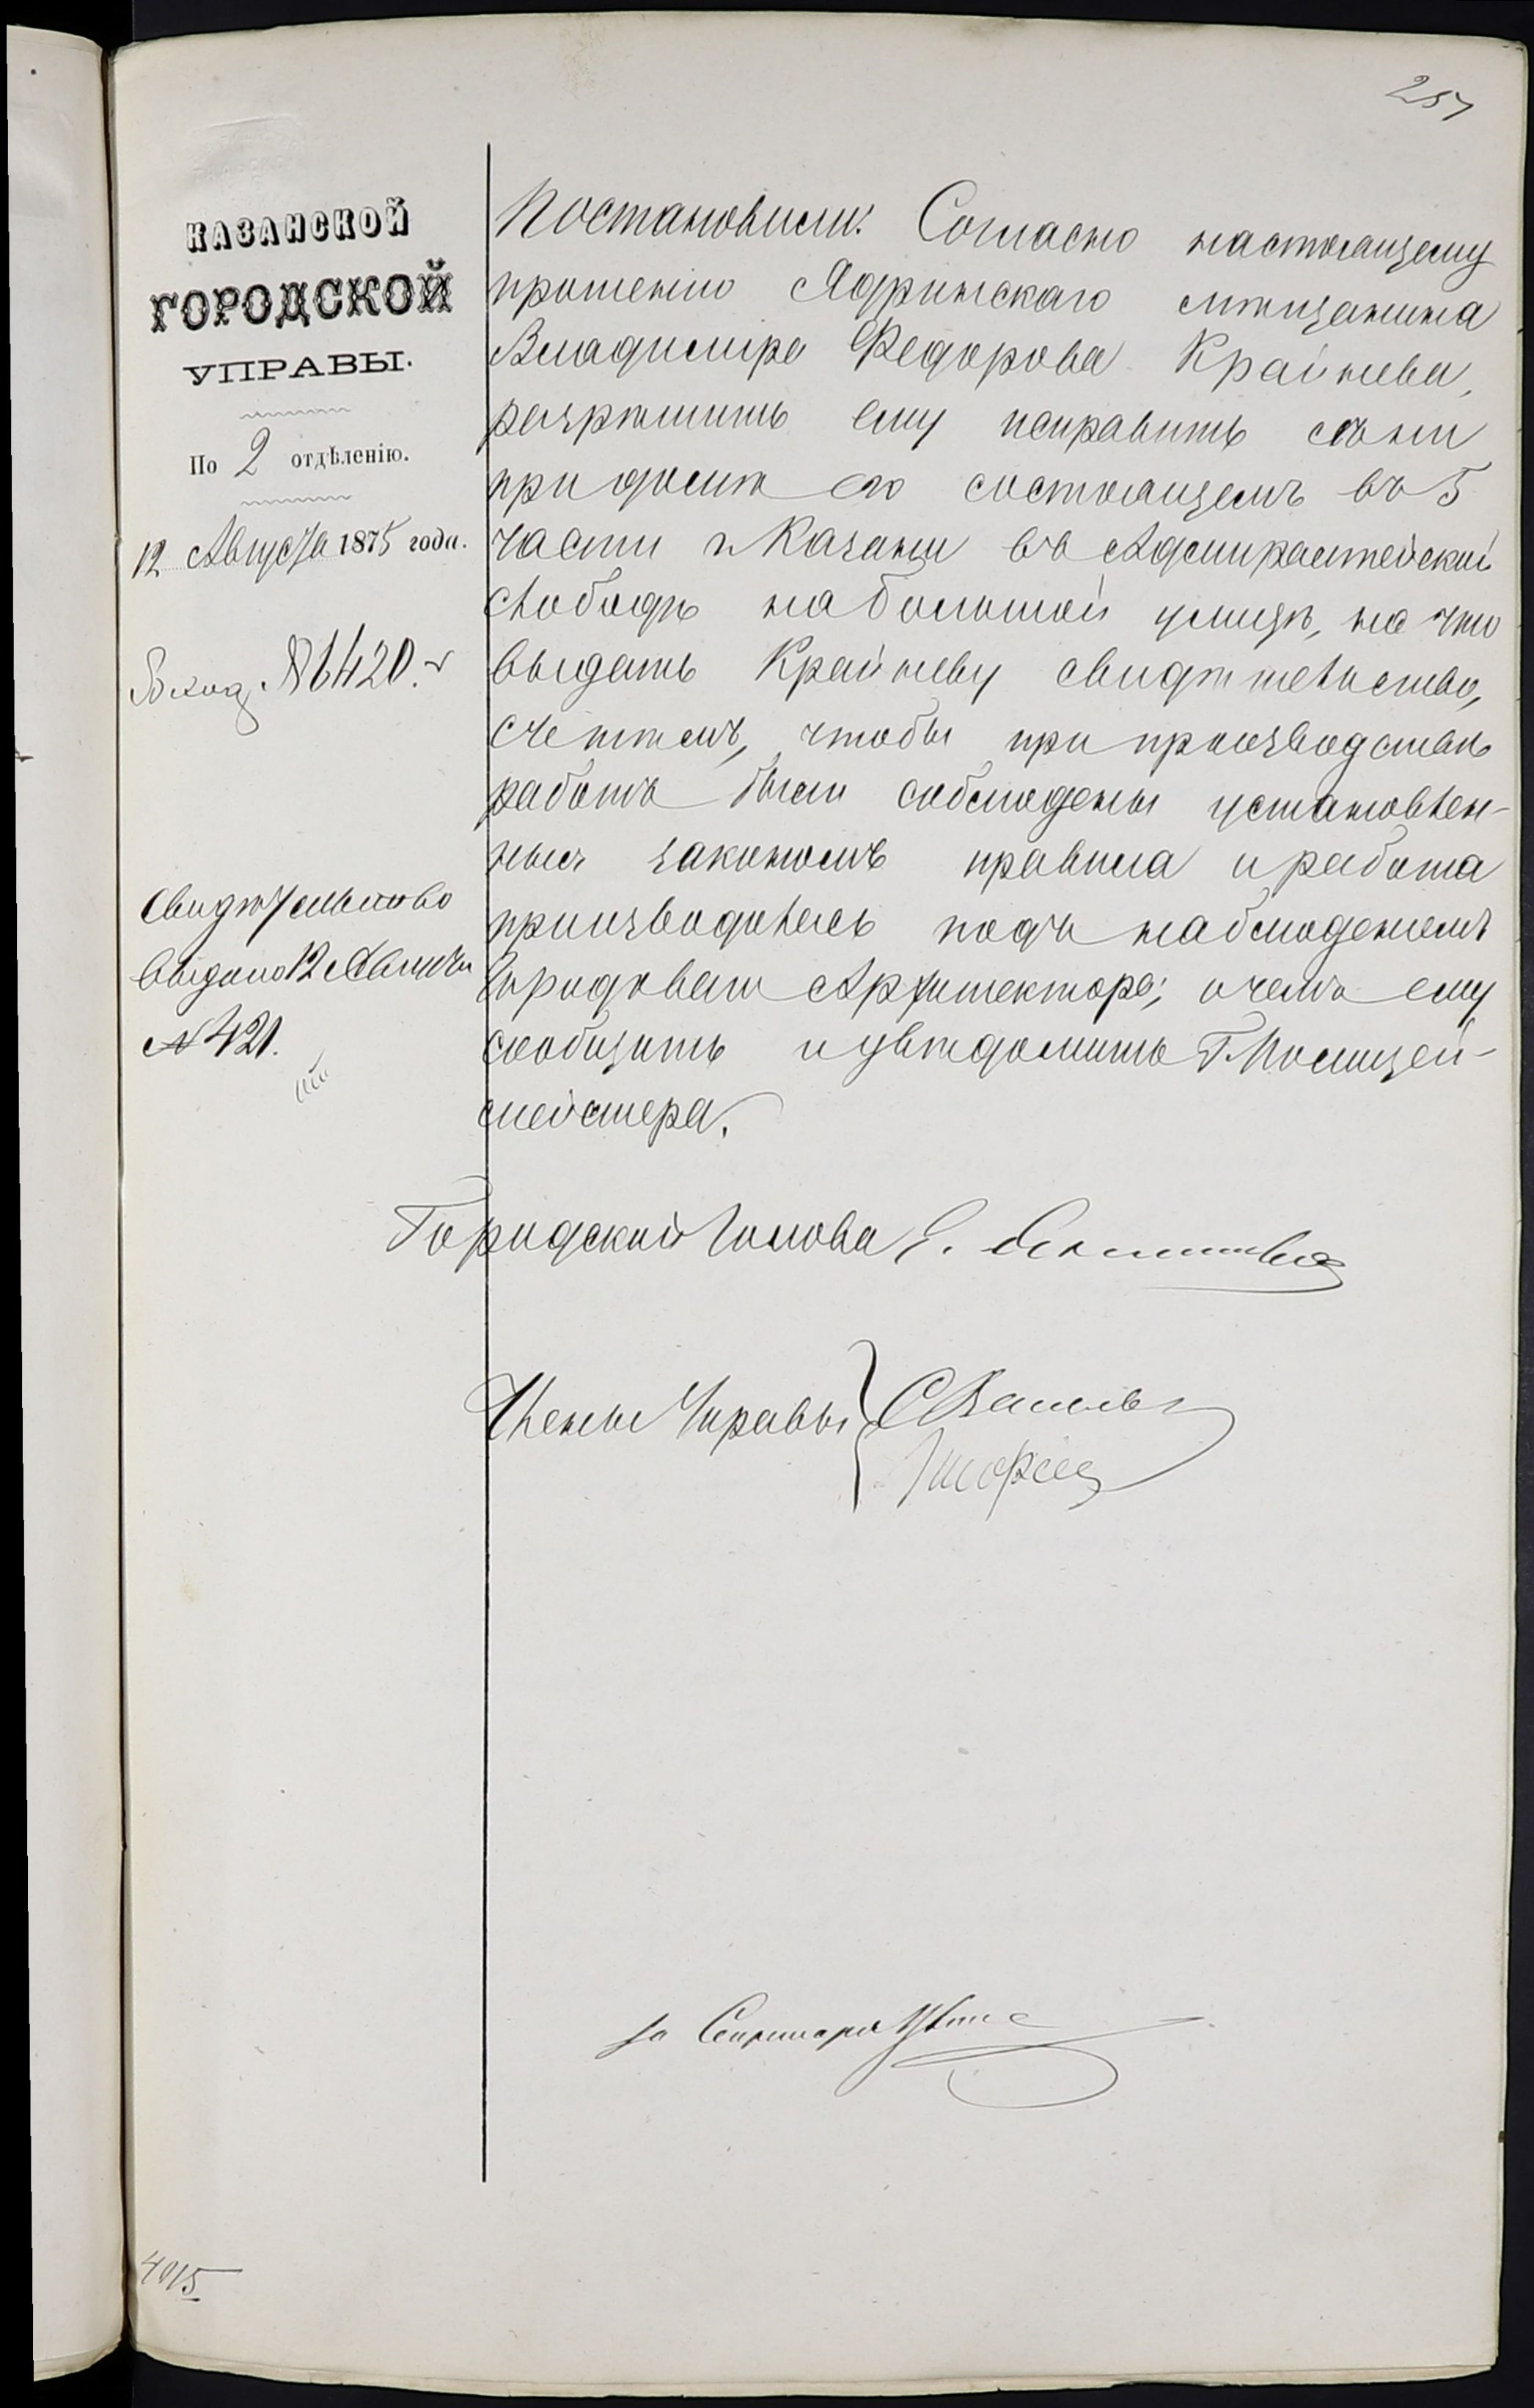 257
КАЗАНСКОЙ
ГОРОДСКОЙ
УПРАВЫ.
По 2 отдѣленію.
12 Августа 1875 года.
Вход. № 6420.
Свидѣтельство
выдано 12 Августа
№ 421.
Постановили: Согласно настоящему
прошенію Ядринскаго мѣщанина
Владимира Федорова Крайнева,
разрѣшить ему исправить сѣни
при домѣ его состоящемъ въ 5
части г. Казани въ Адмиралтейской
слободѣ на большой улицѣ, на что
выдать Крайневу свидѣтельство,
съ тѣмъ, чтобы при производствѣ
работъ были соблюдены установлен-
ныя закономъ правила и работа
производилась подъ наблюденіемъ
Городоваго Архитектора; о чемъ ему
сообщить и увѣдомить Г. Полицей-
мейстера.
Городской Голова Е.
Члены Управы
за Секретаря
4015